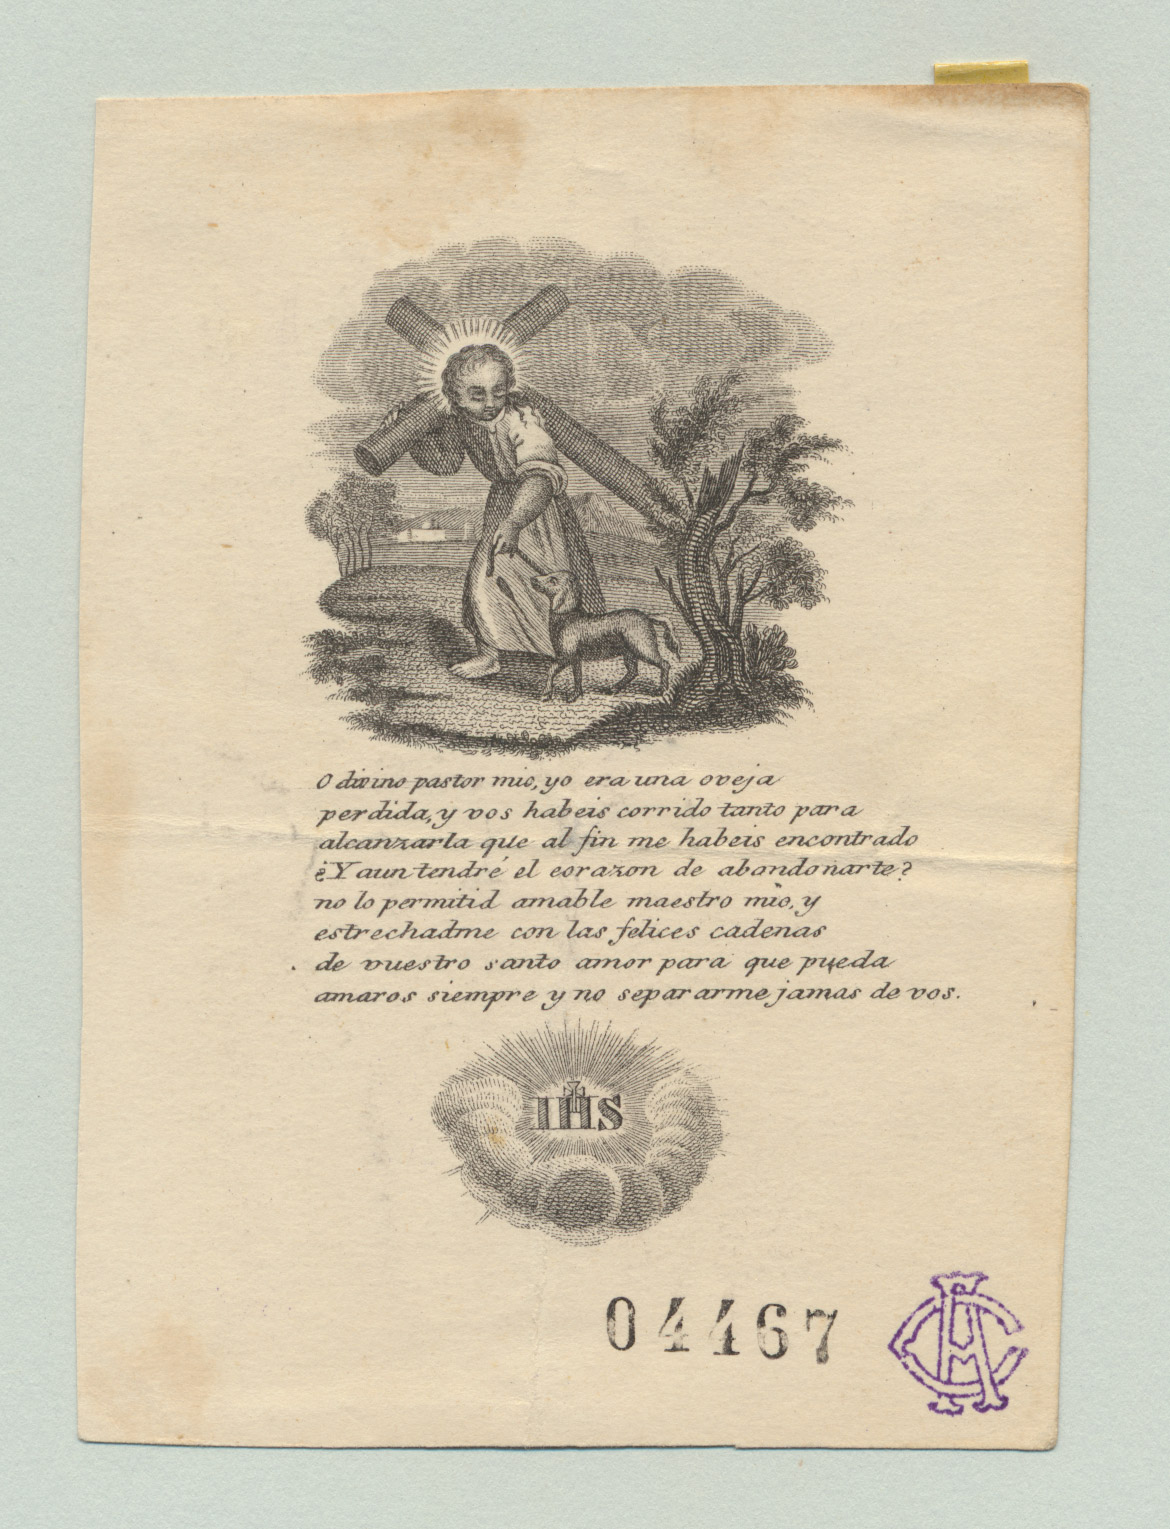 O divino pastor mio, yo era una oveja
perdida, y vos habeis corrido tanto para
alcanzarla que al fin me habeis encontrado
¿Y aun tendré el corazon de abandonarte?
no lo permitid amable maestro mio, y
estrechadme con las felices cadenas
de vuestro santo amor para que pueda
amaros siempre y no separarme jamas de vos.
IHS
04467